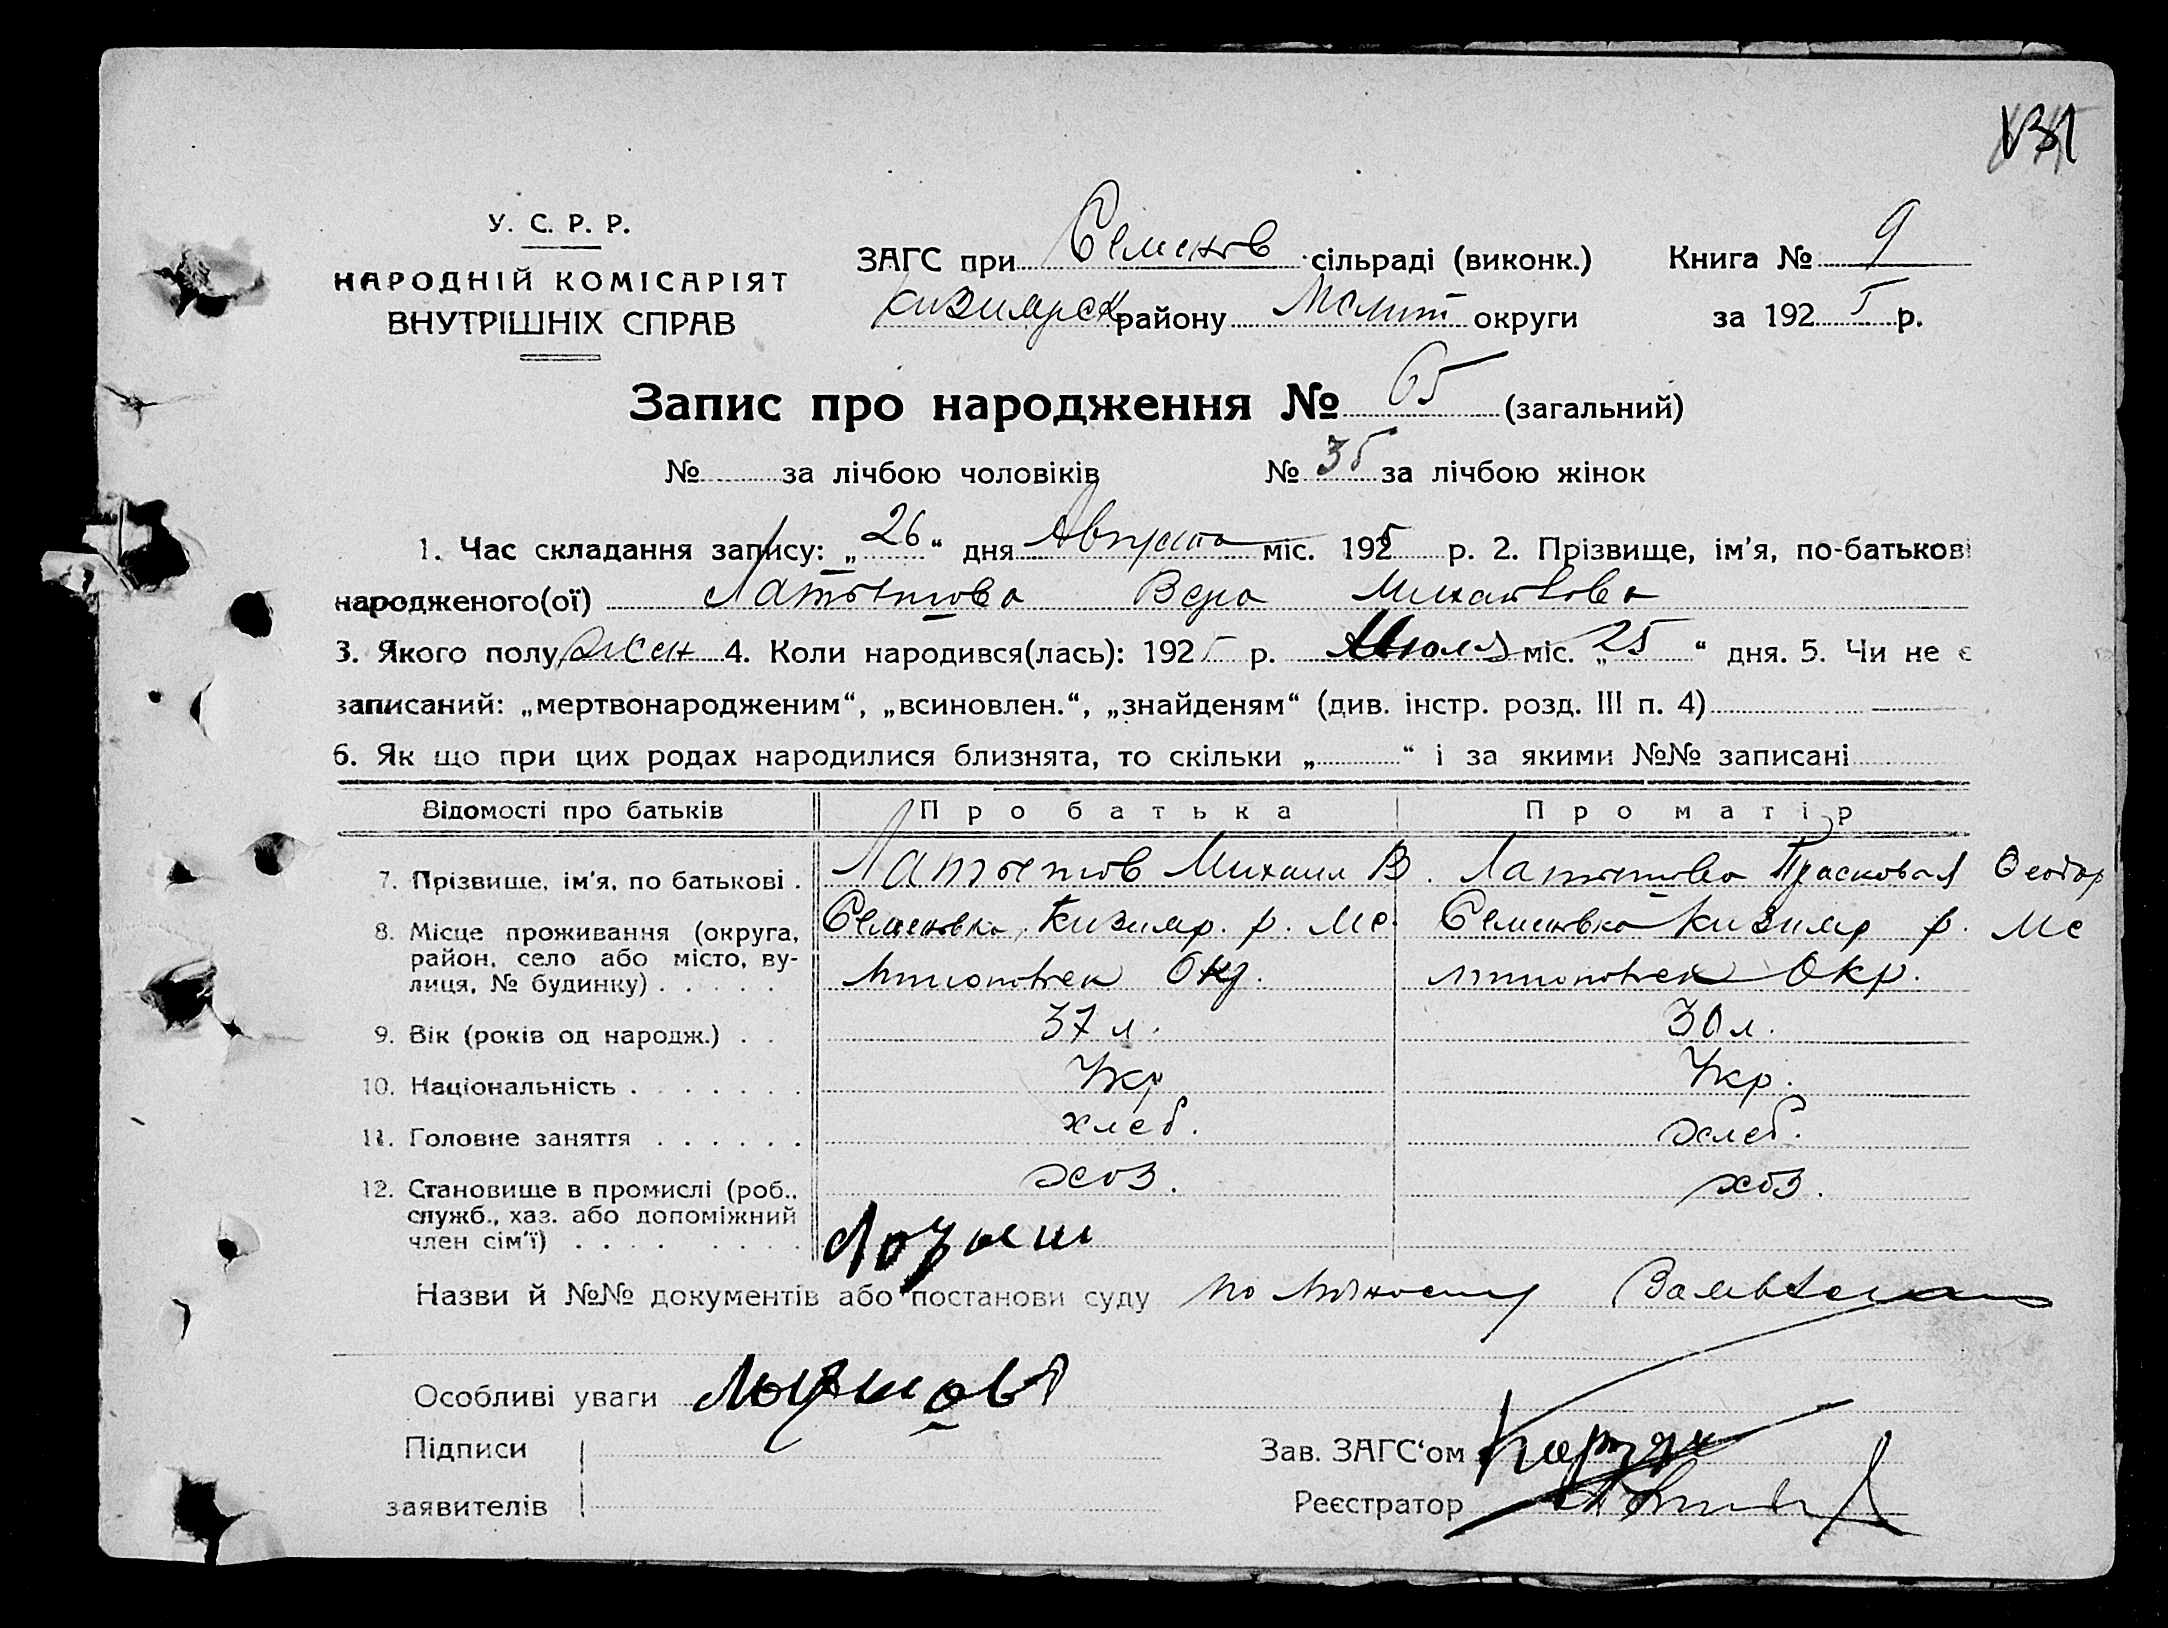 131
У. С. Р. Р.
НАРОДНІЙ КОМІСАРІЯТ
ВНУТРІШНІХ СПРАВ
ЗАГС при Семенов сільраді (виконк.) Книга № 9
Кизиярск району Мелит округи за 1925 р.
Запис про народження № 65 (загальний)
№ за лічбою чоловіків № 35 за лічбою жінок
1. Час складання запису: „26“ дня Августа міс. 1925 р. 2. Прізвище, ім'я, по-батькові
народженого(ої) Латышова Вера Михайлова
3. Якого полу жен 4. Коли народився(лась): 1925 р. Июля міс. „25“ дня. 5. Чи не є
записаний: „мертвонародженим“, „всиновлен.“, „знайденям“ (див. інстр. розд. III п. 4)
6. Як що при цих родах народилися близнята, то скільки „ “ і за якими №№ записані
Відомості про батьків Про батька Про матір
7. Прізвище, ім'я, по батькові . Латышов Михаил В. Латышова Прасковья Феодор
8. Місце проживання (округа, Семеновка, Кизияр. р. Ме Семеновка Кизияр р. Ме
район, село або місто, ву-
лиця, № будинку) . . . . . литопольск Окр. литопольск Окр.
9. Вік (років од народж.) . . 37 л. 30 л.
10. Національність . . . . . . . Укр Укр.
11. Головне заняття . . . . . . хлеб. хлеб.
12. Становище в промислі (роб., хоз. хоз.
служб., хаз. або допоміжний
член сім'ї) . . . . . . . .
Назви й №№ документів або постанови суду по
Особливі уваги
Підписи
заявителів
Зав. ЗАГС'ом
Реєстратор